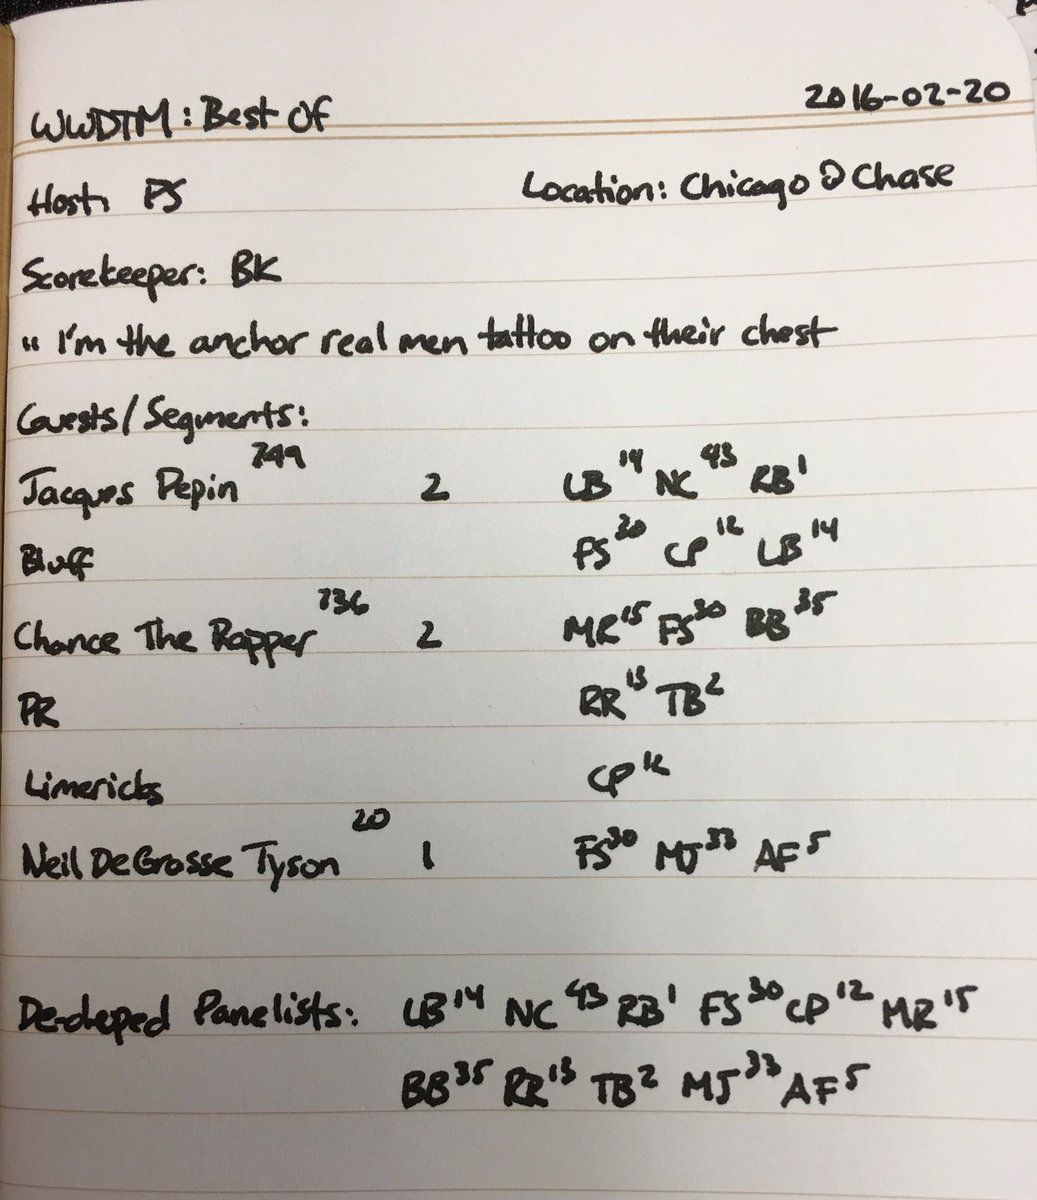 WWDTM: Best Of 2016-02-20
Host: PS Location: Chicago @ Chase
Scorekeeper: BK
" I'm the anchor real men tattoo on their chest
Guests/Segments:
Jacques Pepin 749 2 LB 14 NC 43 RB 1
Bluff FS 30 CP 12 LB 14
Chance The Rapper 736 2 MR 15 FS 30 BB 35
PR RR 13 TB 2
Limericks CP 12
Neil DeGrasse Tyson 20 1 FS 30 MJ 33 AF 5
De-duped Panelists: LB 14 NC 43 RB 1 FS 30 CP 12 MR 15
BB 35 RR 13 TB 2 MJ 33 AF 5